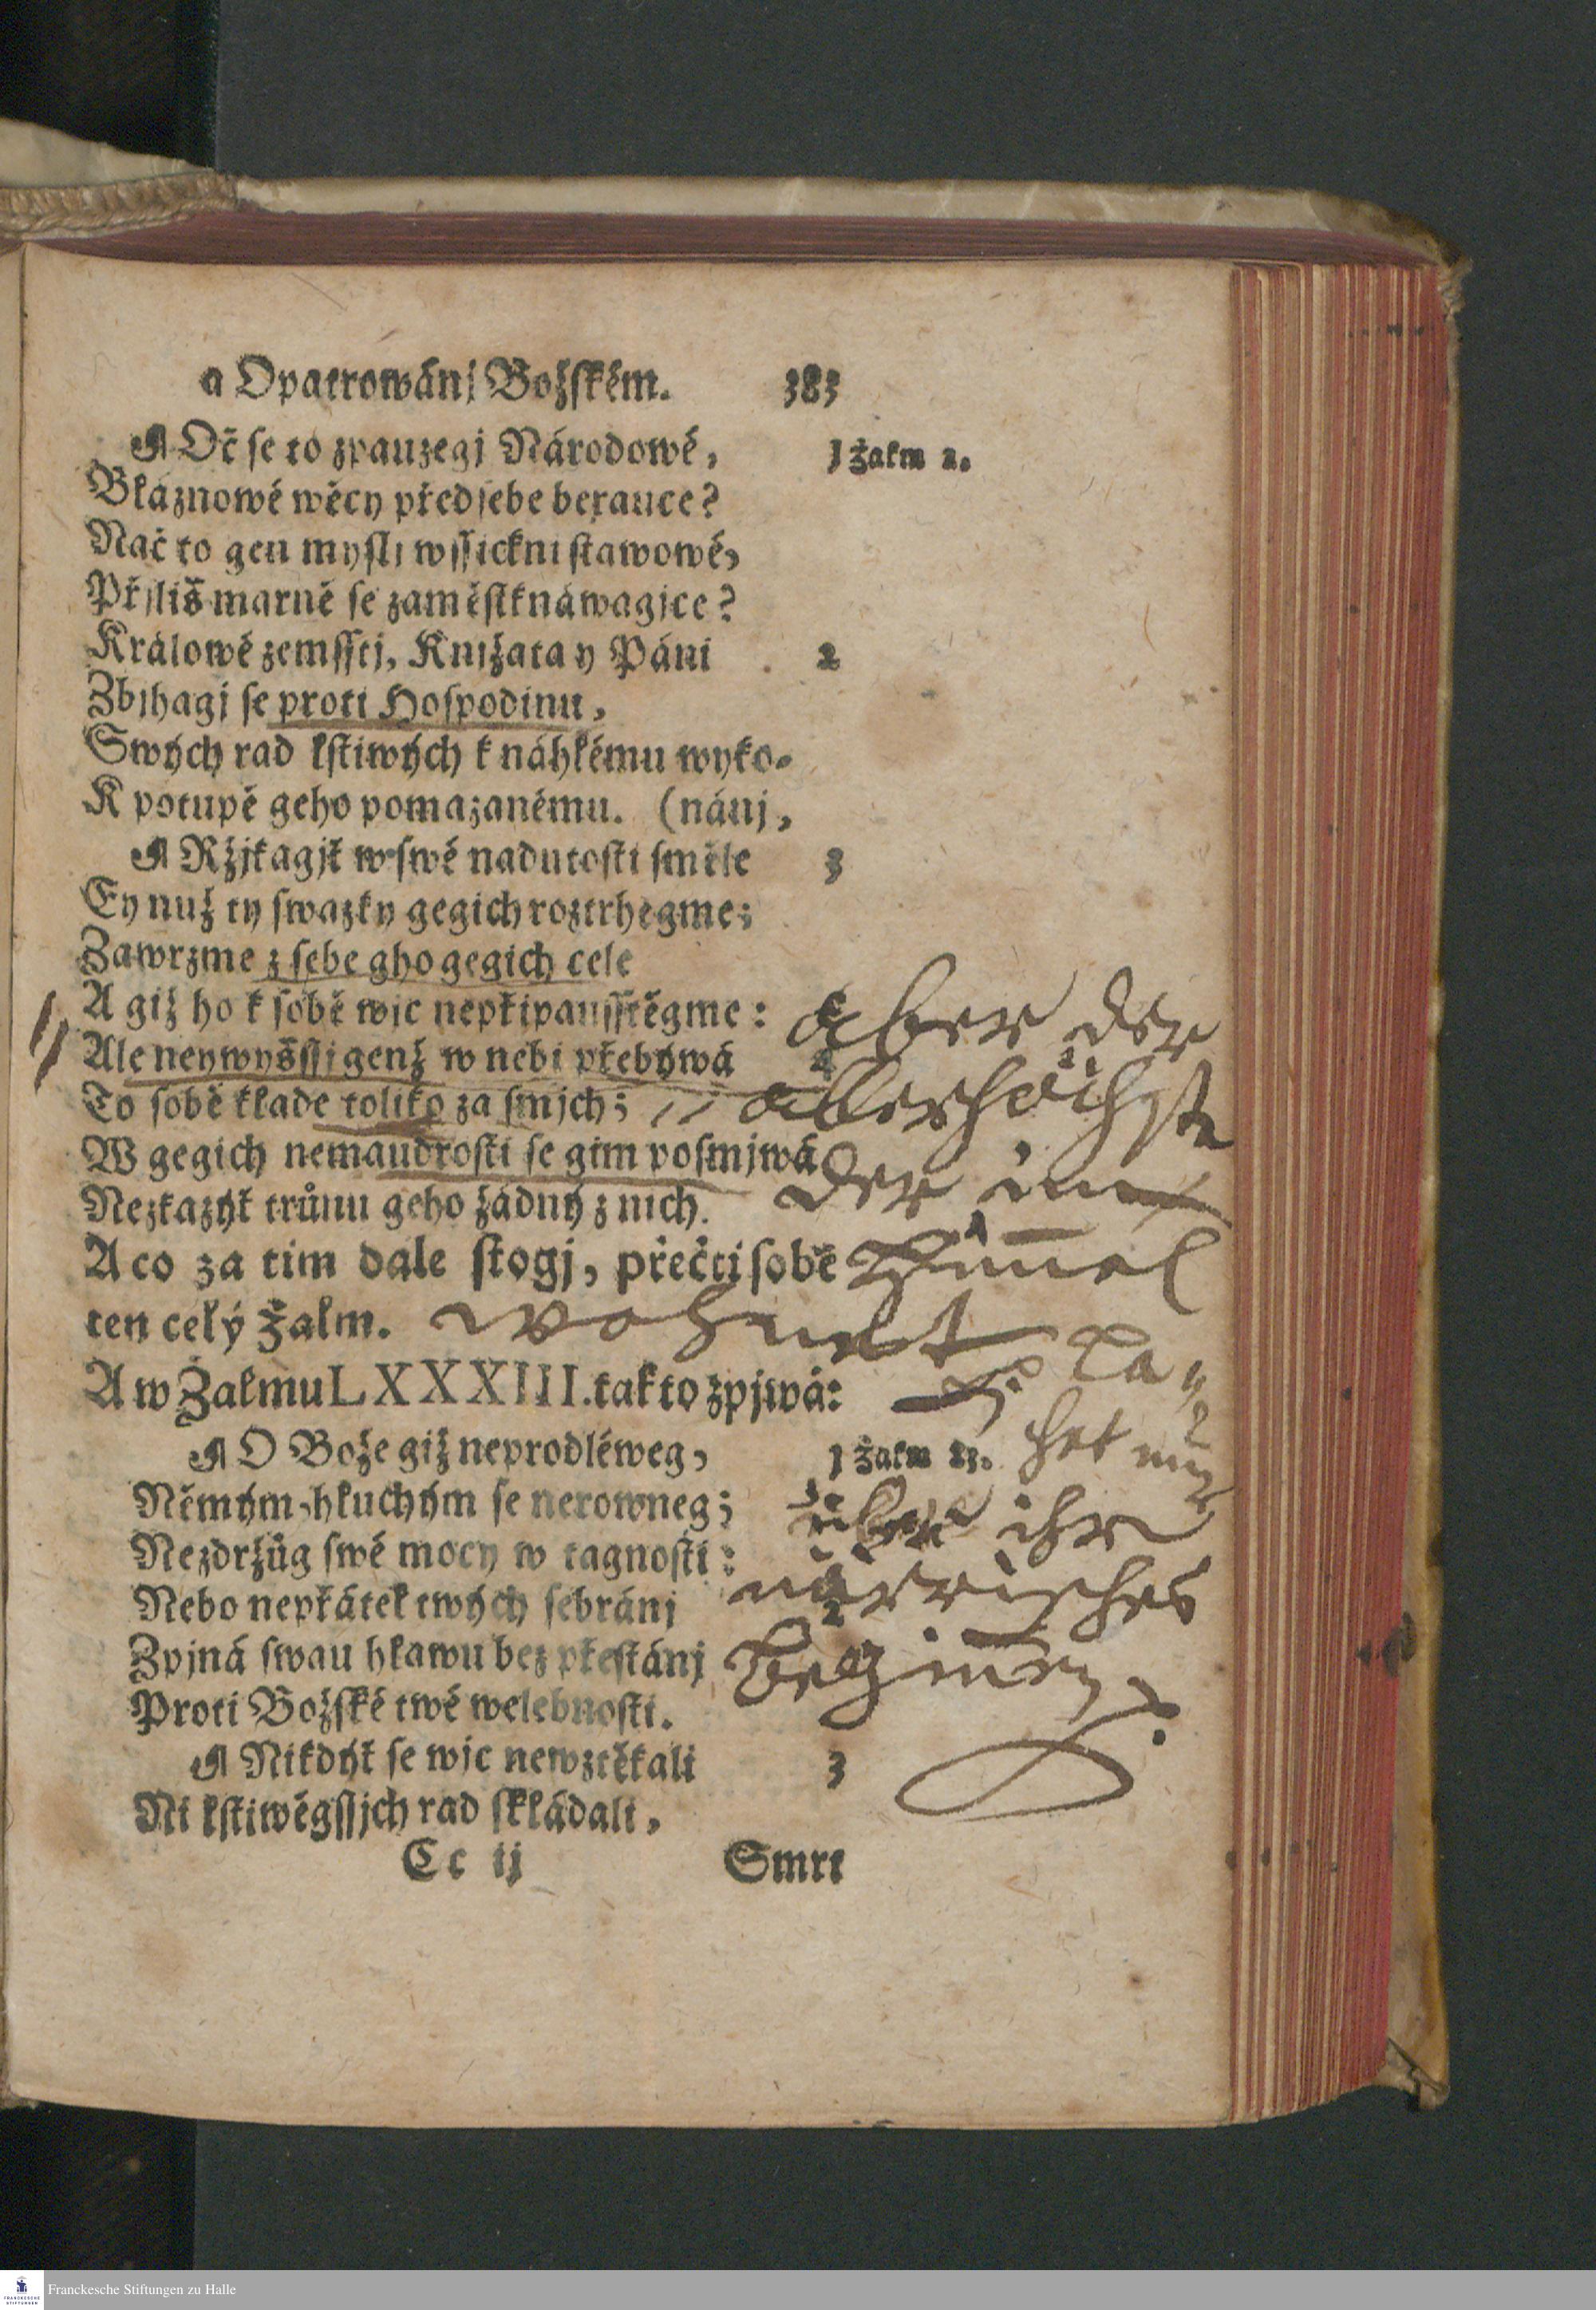 a Opatrowánj Božſkém. 383
¶ Oč ſe to zpauzegj Národowé, ] Žalm 2.
Bláznowé wěcy předſebe berauce?
Nač to gen myſlj wſſickni ſtawowé,
Přjliš marně ſe zaměſtknáwagjce?
Králowé zemſſtj, Knjžata y Páni 2
Zbjhagj ſe proti Hoſpodinu,
Swých rad lſtiwých k náhlému wyko-
K potupě geho pomazanému. (nánj,
¶ Ržjkagjť w ſwé nadutoſti ſměle 3
Ey nuž ty ſwazky gegich roztrhegme;
Zawrzme z ſebe gho gegich cele
A giž ho k ſobě wjc nepřipauſſtěgme: aber der
Ale neywyšſſj genž w nebi přebýwá 4
To ſobě klade toliko za ſmjch; // allerhöchste
W gegich nemaudroſti ſe gim poſmjwá
Nezkazýť trůnu geho žádný z nich. der im
A co za tim dale ſtogj, přečti ſobě Himmel
ten celý Žalm. wohnet
A w Žalmu LXXXIII. tak to zpjwá: La=
¶ O Bože giž neprodléweg, ] Žalm 83. chet nur
Němým, hluchým ſe nerowneg; über ihr
Nezdržůg ſwé mocy w tagnoſti:
Nebo nepřátel twých ſebránj 2 närrisches
Zpjná ſwau hlawu bez přeſtánj Beginnen
Proti Božſké twé welebnoſti.
¶ Nikdýť ſe wjc newztěkali 3
Ni lſtiwěgſſjch rad ſkládali,
Cc ij Smrt
Franckesche Stiftungen zu Halle